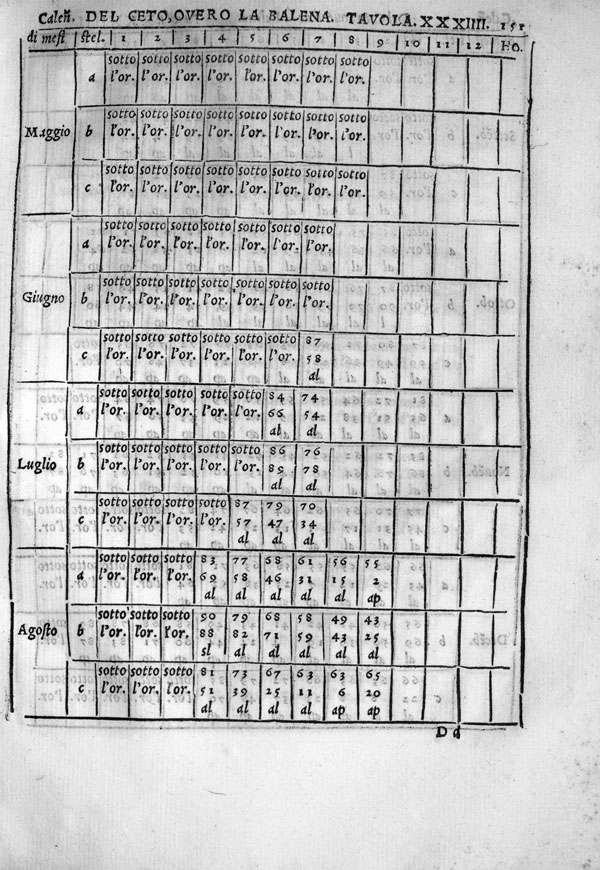 Caleñ. DEL CETO, OVERO LA BALENA. TAVOLA. XXXIIII. 151
di mesi | stel. | 1 | 2 | 3 | 4 | 5 | 6 | 7 | 8 | 9 | 10 | 11 | 12 | Ho.
sotto sotto sotto sotto sotto sotto sotto sotto
a l'or. l'or. l'or. l'or. l'or. l'or. l'or. l'or.
sotto sotto sotto sotto sotto sotto sotto sotto
Maggio b l'or. l'or. l'or. l'or. l'or. l'or. l'or. l'or.
sotto sotto sotto sotto sotto sotto sotto sotto
c l'or. l'or. l'or. l'or. l'or. l'or. l'or. l'or.
sotto sotto sotto sotto sotto sotto sotto
a l'or. l'or. l'or. l'or. l'or. l'or. l'or.
sotto sotto sotto sotto sotto sotto sotto
Giugno b l'or. l'or. l'or. l'or. l'or. l'or. l'or.
sotto sotto sotto sotto sotto sotto 87
c l'or. l'or. l'or. l'or. l'or. l'or. 58
al
sotto sotto sotto sotto sotto 84 74
a l'or. l'or. l'or. l'or. l'or. 66 54
al al
sotto sotto sotto sotto sotto 86 76
Luglio b l'or. l'or. l'or. l'or. l'or. 89 78
al al
sotto sotto sotto sotto 87 79 70
c l'or. l'or. l'or. l'or. 57 47 34
al al al
sotto sotto sotto 83 77 68 61 56 55
a l'or. l'or. l'or. 69 58 46 31 15 2
al al al al al ap
sotto sotto sotto 90 79 68 58 49 43
Agosto b l'or. l'or. l'or. 88 82 71 59 43 25
sl al al al al al
sotto sotto sotto 81 73 67 63 63 65
c l'or. l'or. l'or. 51 39 25 11 6 20
al al al al ap ap
D d